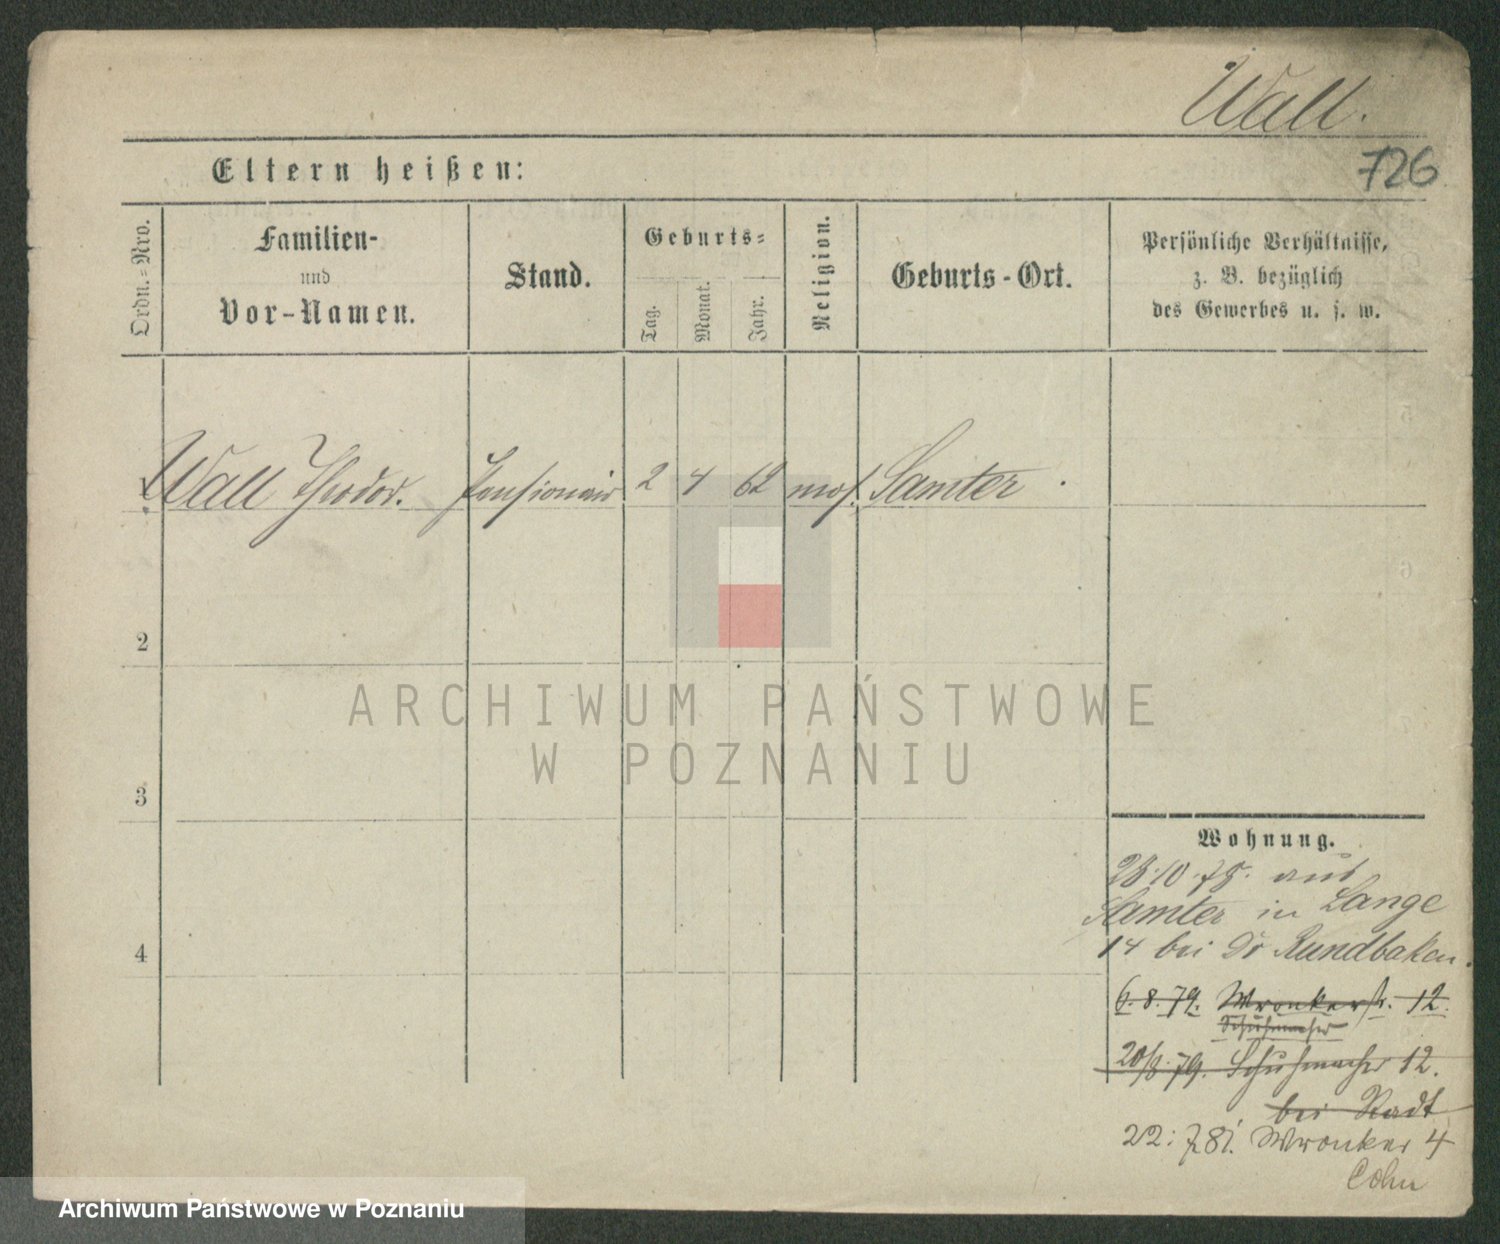 Wall.
726
Eltern heißen:
Ordn.-Nro.
Familien-
und
Vor-Namen.
Stand.
Geburts-
Tag.
Monat.
Jahr.
Religion.
Geburts-Ort.
Persönliche Verhältnisse,
z. B. bezüglich
des Gewerbes u. s. w.
1 Wall Theodor. Pensionair 2 4 62 mos. Samter.
2
3
4
ARCHIWUM PAŃSTWOWE
W POZNANIU
Wohnung.
28.10.78. aus
Samter in Lange
14 bei Dr Rundbaken.
6.8.79. Wronkerstr. 12.
Schuhmacher
20/8.79. Schuhmacher 12.
bei Stadt
22: 7 81. Wronker 4
Cohn
Archiwum Państwowe w Poznaniu